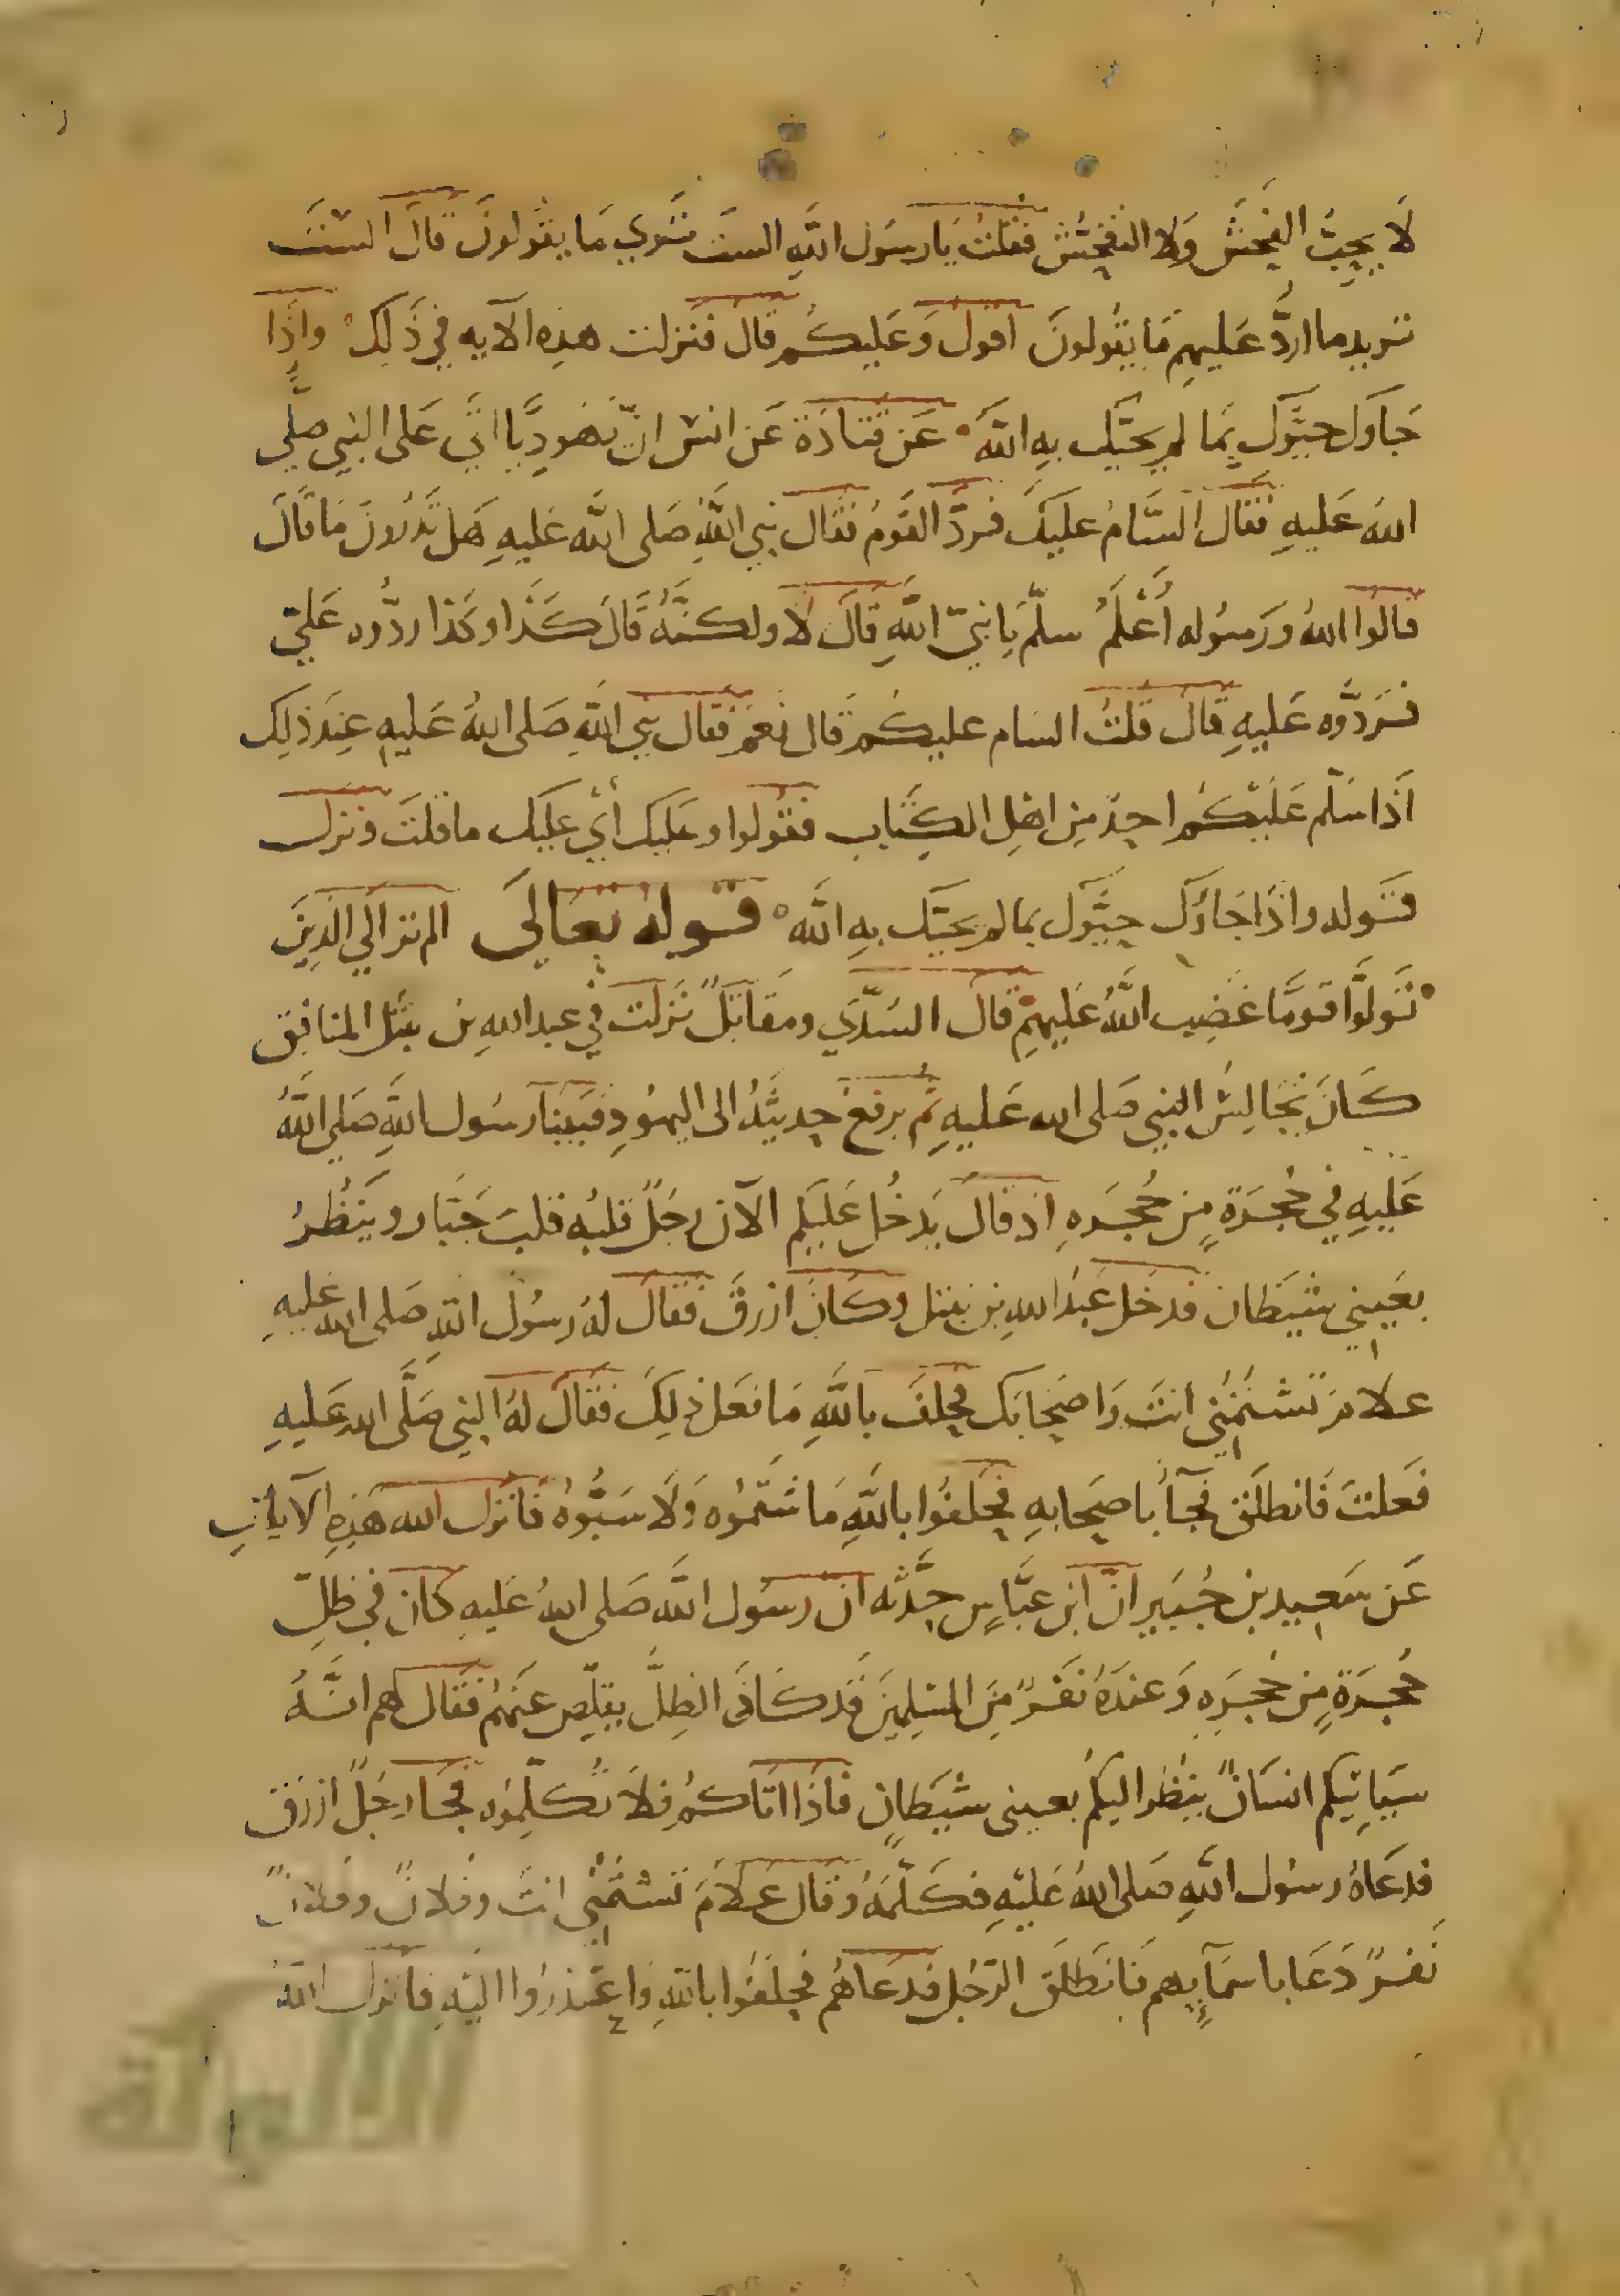 لَا يحِبُّ الفحْشَ وَلا التفحّشَ فقلتُ يَا رسُول اللهِ الستَ تَرى مَا يقولونَ قالَ الستَ
تريد ما اردُّ عَليهِم مَا يقُولونَ اقول وَعَليكُم قال فنزلت هذِه الآيه في ذَلِكَ واذَا
جَاؤك حيَّوك بمَا لم يحيّك بهِ اللهُ عَن قتادَة عَن انس انّ يَهُودِيًّا اتَى عَلى النبي صلَّى
اللهُ عَليهِ فقال السَّامُ عليكَ فردَّ القَومُ فقال نبي اللهِ صَلى اللهُ عَليهِ هَل تَدْرُونَ مَا قالَ
قالوا اللهُ وَرَسُوله أعْلَمُ سلّم يَا نبيّ اللهِ قالَ لا ولكنَّهُ قَالَ كَذَا وكَذا ردُّوه عَليّ
فَردُّوه عَليهِ قالَ قلتَ السَام عليكُم قال نعَم فقال نبي اللهِ صَلى اللهُ عَليهِ عِندَ ذلِك
اذَا سَلّم عَليْكُم احدٌ مِن اهْلِ الكِتابِ فقولوا وعَليك أي عَليك ما قلتَ ونزل
قَوله واذَا جَاؤك حيَّوك بما لم يحيّك بهِ الله قوله تعَالَى الم تر الي الذِينَ
تَولَّوا قومًا غَضِب اللهُ عَليهِم قالَ السُدّي ومقاتلٌ نَزلت في عبد اللهِ بن نبتل المنافِق
كَانَ يُجَالِسُ النبي صَلى الله عَليهِ ثم يرفعُ حديثَهُ الى اليهُودِ فبَينا رسُول اللهِ صَلى اللهُ
عَليهِ في حُجرَةٍ مِن حُجَرَهِ اذ قالَ يَدخُل عَليكم الآن رجُلٌ قلبُه قلبُ جَبّار ويَنظُرُ
بعَيني شيطَان فدخَل عَبدُ اللهِ بن نبتل وكَانَ ازرقَ فقالَ لهُ رسُولُ اللهِ صَلى الله عَليهِ
عَلامَ تَشتُمُني انتَ وَاصحَابَك فحلفَ باللهِ مَا فعَلَ ذلِكَ فقالَ لهُ النبي صَلَّى الله عَليهِ
فعَلتَ فَانطلَق فجآءَ باصحَابهِ فحَلفُوا باللهِ مَا شَتَمُوه وَلَا سَبُّوهُ فَانزلَ الله هَذِهِ الآياتِ
عَن سَعِيد بن جُبَير انَّ ابن عبَّاسٍ حدَّثه انّ رسُول الله صَلى اللهُ عَليهِ كان في ظلِّ
حُجرَةٍ مِن حُجَرِهِ وَعندَهُ نَفرٌ مِنَ المسْلِمينَ قَد كَانَ الظِلُّ يقلّص عَنهُم فقال لهم انَّهُ
سَيَاتِيكم انسَانٌ ينظُر اليكُم بعَينى شَيطَانٍ فاذَا اتَاكُم فلَا تُكلّمُوه فجَا رجُلٌ ازرَق
فدعَاهُ رسول اللهِ صَلى اللهُ عَليْهِ فكَلّمَهُ وَقال عَلامَ تَشتُمُني انتَ وفلانٌ وفلانٌ
نَفرٌ دَعَا باسمَآئِهم فَانطَلقَ الرّجُل فدعَاهُم فحلَفُوا باللهِ وَاعتَذرُوا اليْهِ فانزل اللهُ